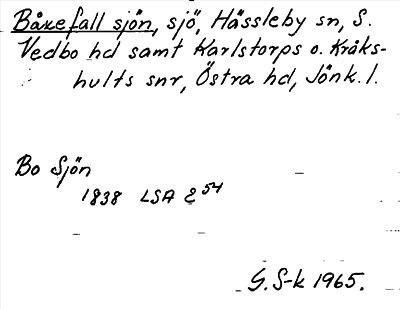 Båxefall sjön, sjö, Hässleby sn, S.
Vedbo hd samt Karlstorps o. Kråks-
hults snr, Östra hd, Jönk. l.
Bo Sjön
1838 LSA E 54
G. S-k 1965.